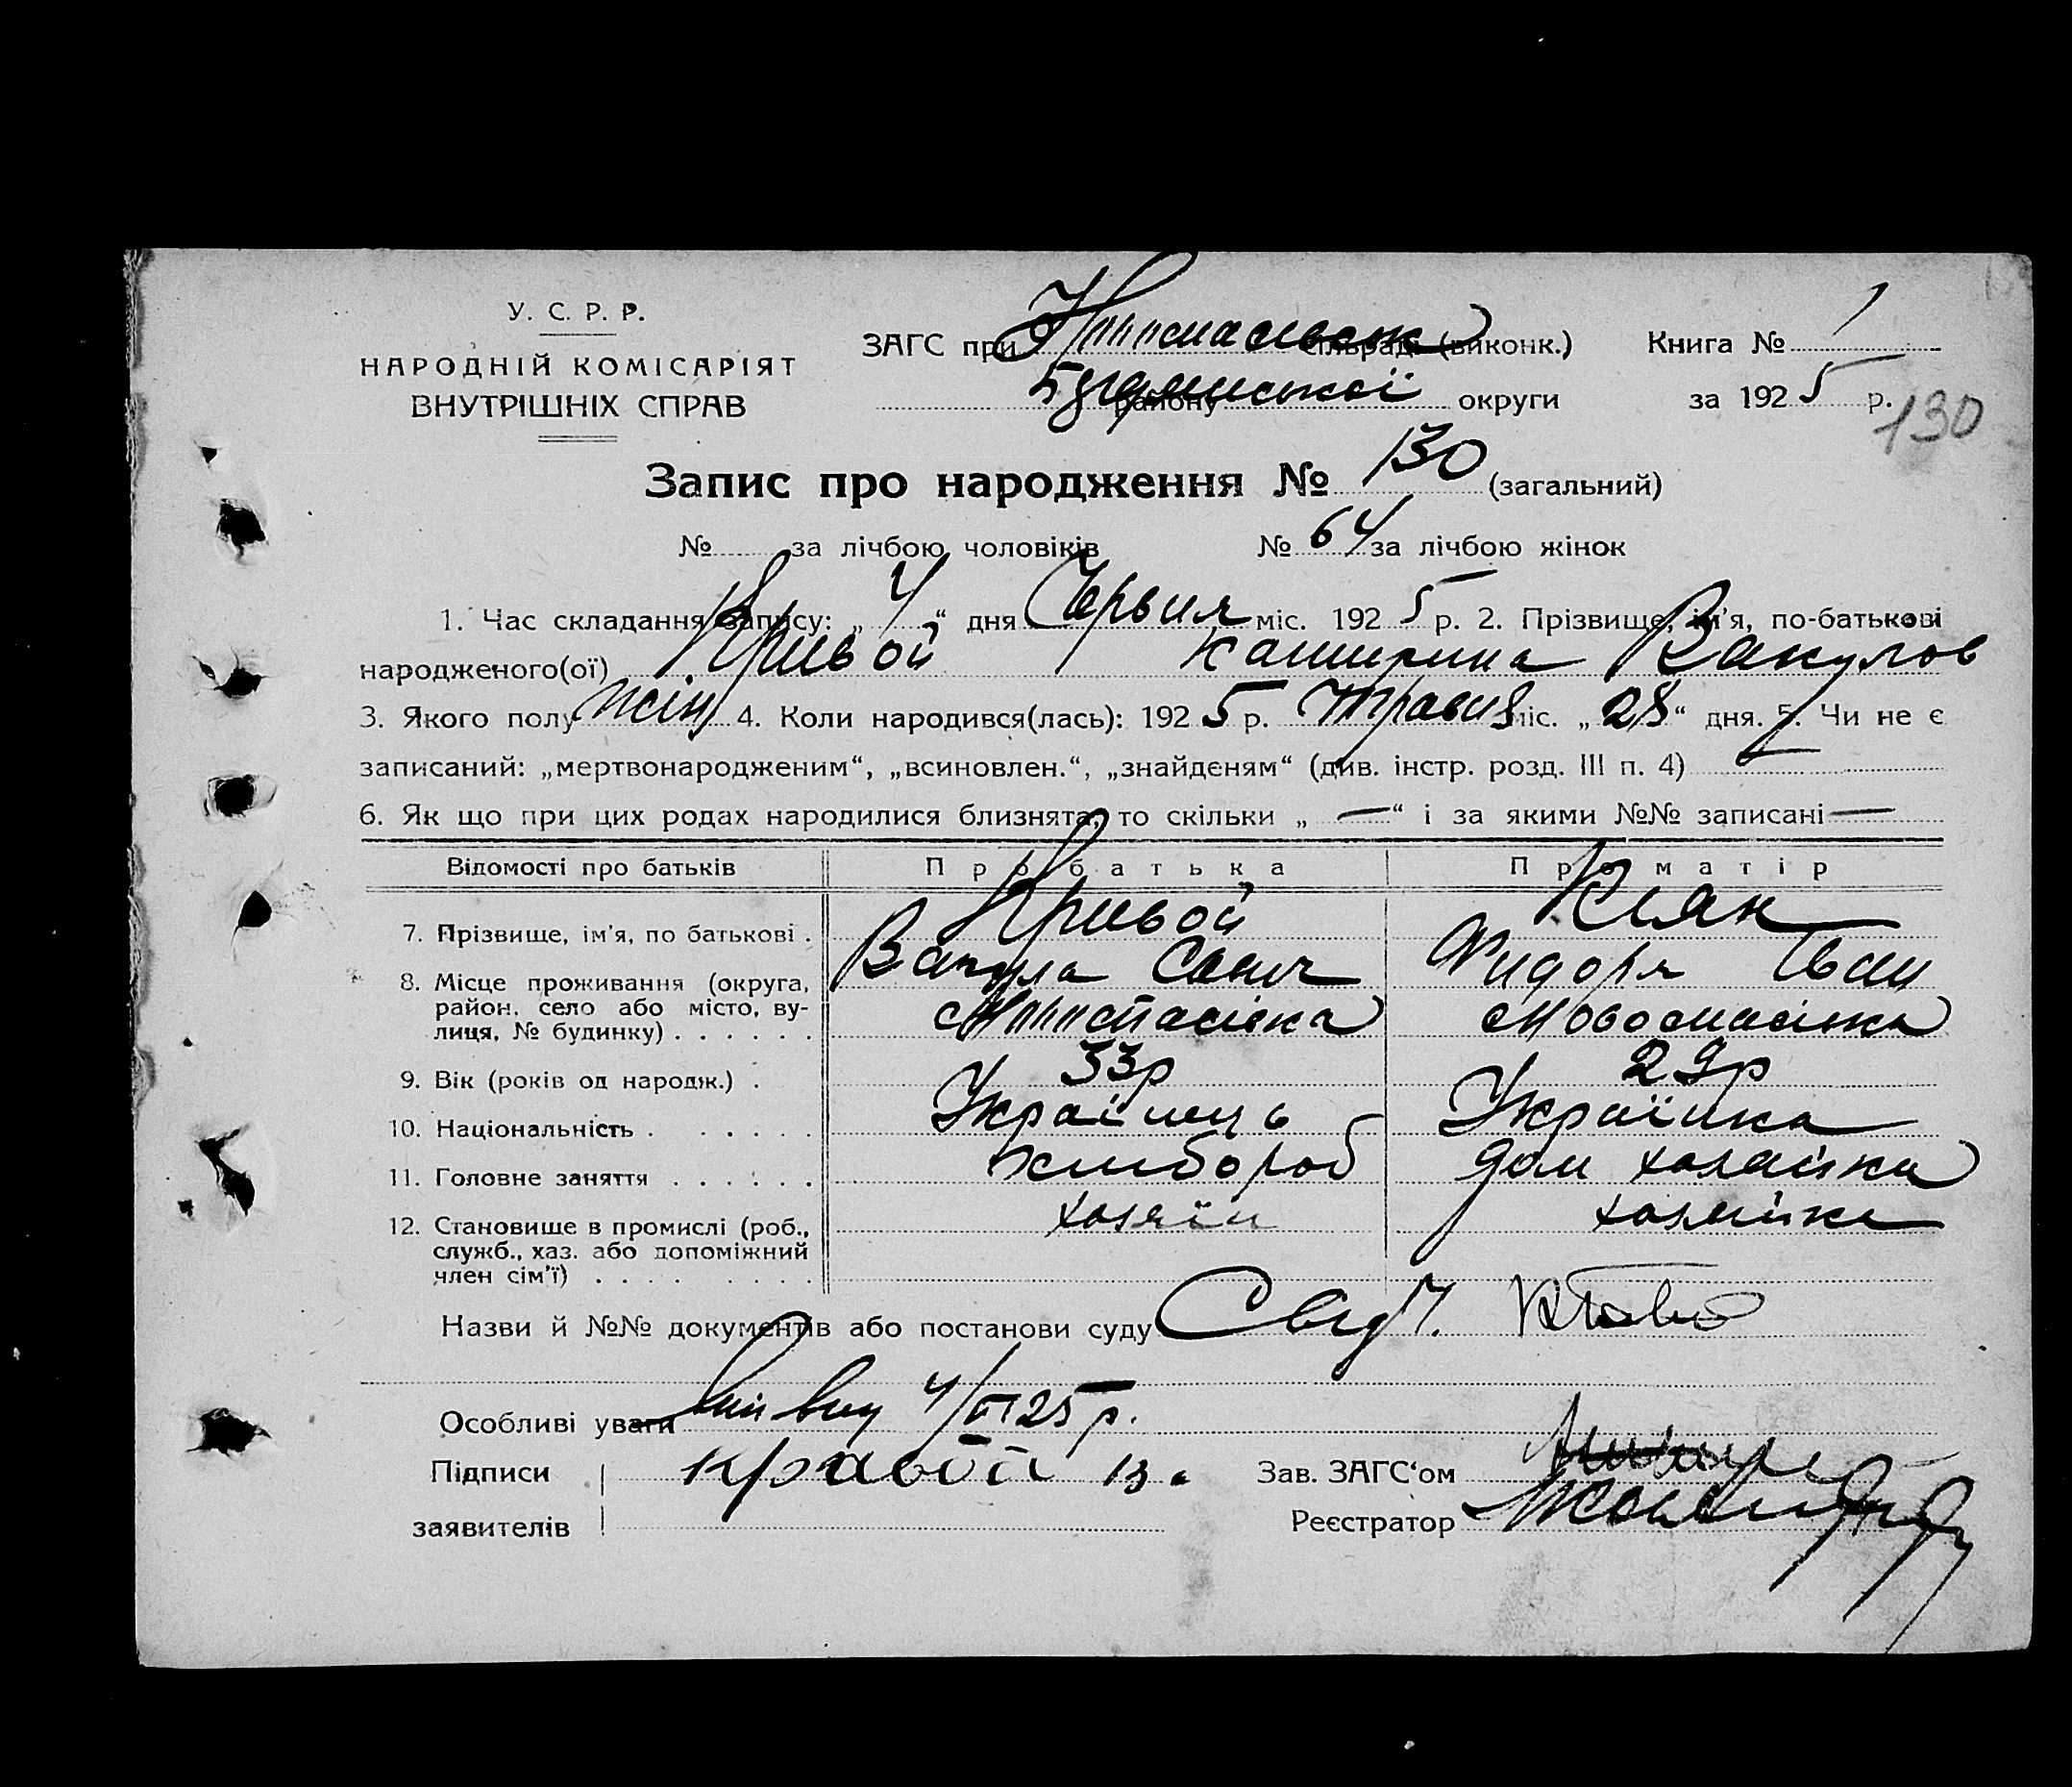 У. С. Р. Р.
НАРОДНІЙ КОМІСАРІЯТ
ВНУТРІШНІХ СПРАВ
ЗАГС при сільраді (виконк.) Книга № 1
району округи за 1925 р.
130
Запис про народження № 130 (загальний)
№ за лічбою чоловіків № 64 за лічбою жінок
1. Час складання запису: „4“ дня Червня міс. 1925 р. 2. Прізвище, ім'я, по-батькові
народженого(ої) Кривой Катирина Вакулов
3. Якого полу жін 4. Коли народився(лась): 1925 р. Травня міс. „28“ дня. 5. Чи не є
записаний: „мертвонародженим“, „всиновлен.“, „знайденям“ (див. інстр. розд. III п. 4) —
6. Як що при цих родах народилися близнята, то скільки „—“ і за якими №№ записані —
Відомості про батьків Про батька Про матір
7. Прізвище, ім'я, по батькові . Кривой Кияк
Вакула Фидоря Іван
8. Місце проживання (округа, район, село або місто, вулиця, № будинку) . . . . . . Новоспасівка
9. Вік (років од народж.) . 33р 29р
10. Національність . . . . . . Українець Українка
11. Головне заняття . . . . . . Хлибороб дом хазайка
12. Становище в промислі (роб., служб., хаз. або допоміжний член сім'ї) . . . . . . . . хазяїн хазяйка
Назви й №№ документів або постанови суду
Особливі уваги 4/VI 25 р.
Підписи Кривой В. Зав. ЗАГС‘ом
заявителів Реєстратор